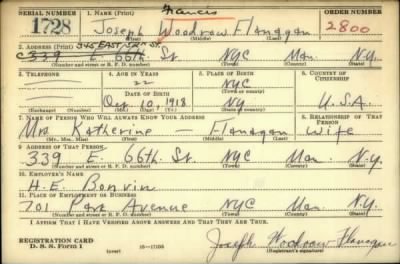 SERIAL NUMBER 1. NAME (Print) Francis ORDER NUMBER
1728 Joseph Woodrow Flanagan 2800
(First) (Middle) (Last)
2. ADDRESS (Print) 345 EAST 52nd St.
339 E. 66th St. NYC Man. N.Y.
(Number and street or R. F. D. number) (Town) (County) (State)
3. TELEPHONE 4. AGE IN YEARS 5. PLACE OF BIRTH 6. COUNTRY OF CITIZENSHIP
22 NYC
DATE OF BIRTH (Town or county)
Oct 10, 1918 NY U.S.A.
(Exchange) (Number) (Mo.) (Day) (Yr.) (State or country)
7. NAME OF PERSON WHO WILL ALWAYS KNOW YOUR ADDRESS 8. RELATIONSHIP OF THAT PERSON
Mrs Katherine — Flanagan Wife
(Mr., Mrs., Miss) (First) (Middle) (Last)
9. ADDRESS OF THAT PERSON
339 E. 66th St. NYC Man. N.Y.
(Number and street or R. F. D. number) (Town) (County) (State)
10. EMPLOYER'S NAME
H. E. Bonvin
11. PLACE OF EMPLOYMENT OR BUSINESS
701 Park Avenue NYC Man. N.Y.
(Number and street or R. F. D. number) (Town) (County) (State)
I AFFIRM THAT I HAVE VERIFIED ABOVE ANSWERS AND THAT THEY ARE TRUE.
REGISTRATION CARD
D. S. S. Form 1 (over) Joseph Woodrow Flanagan
(Registrant's signature)